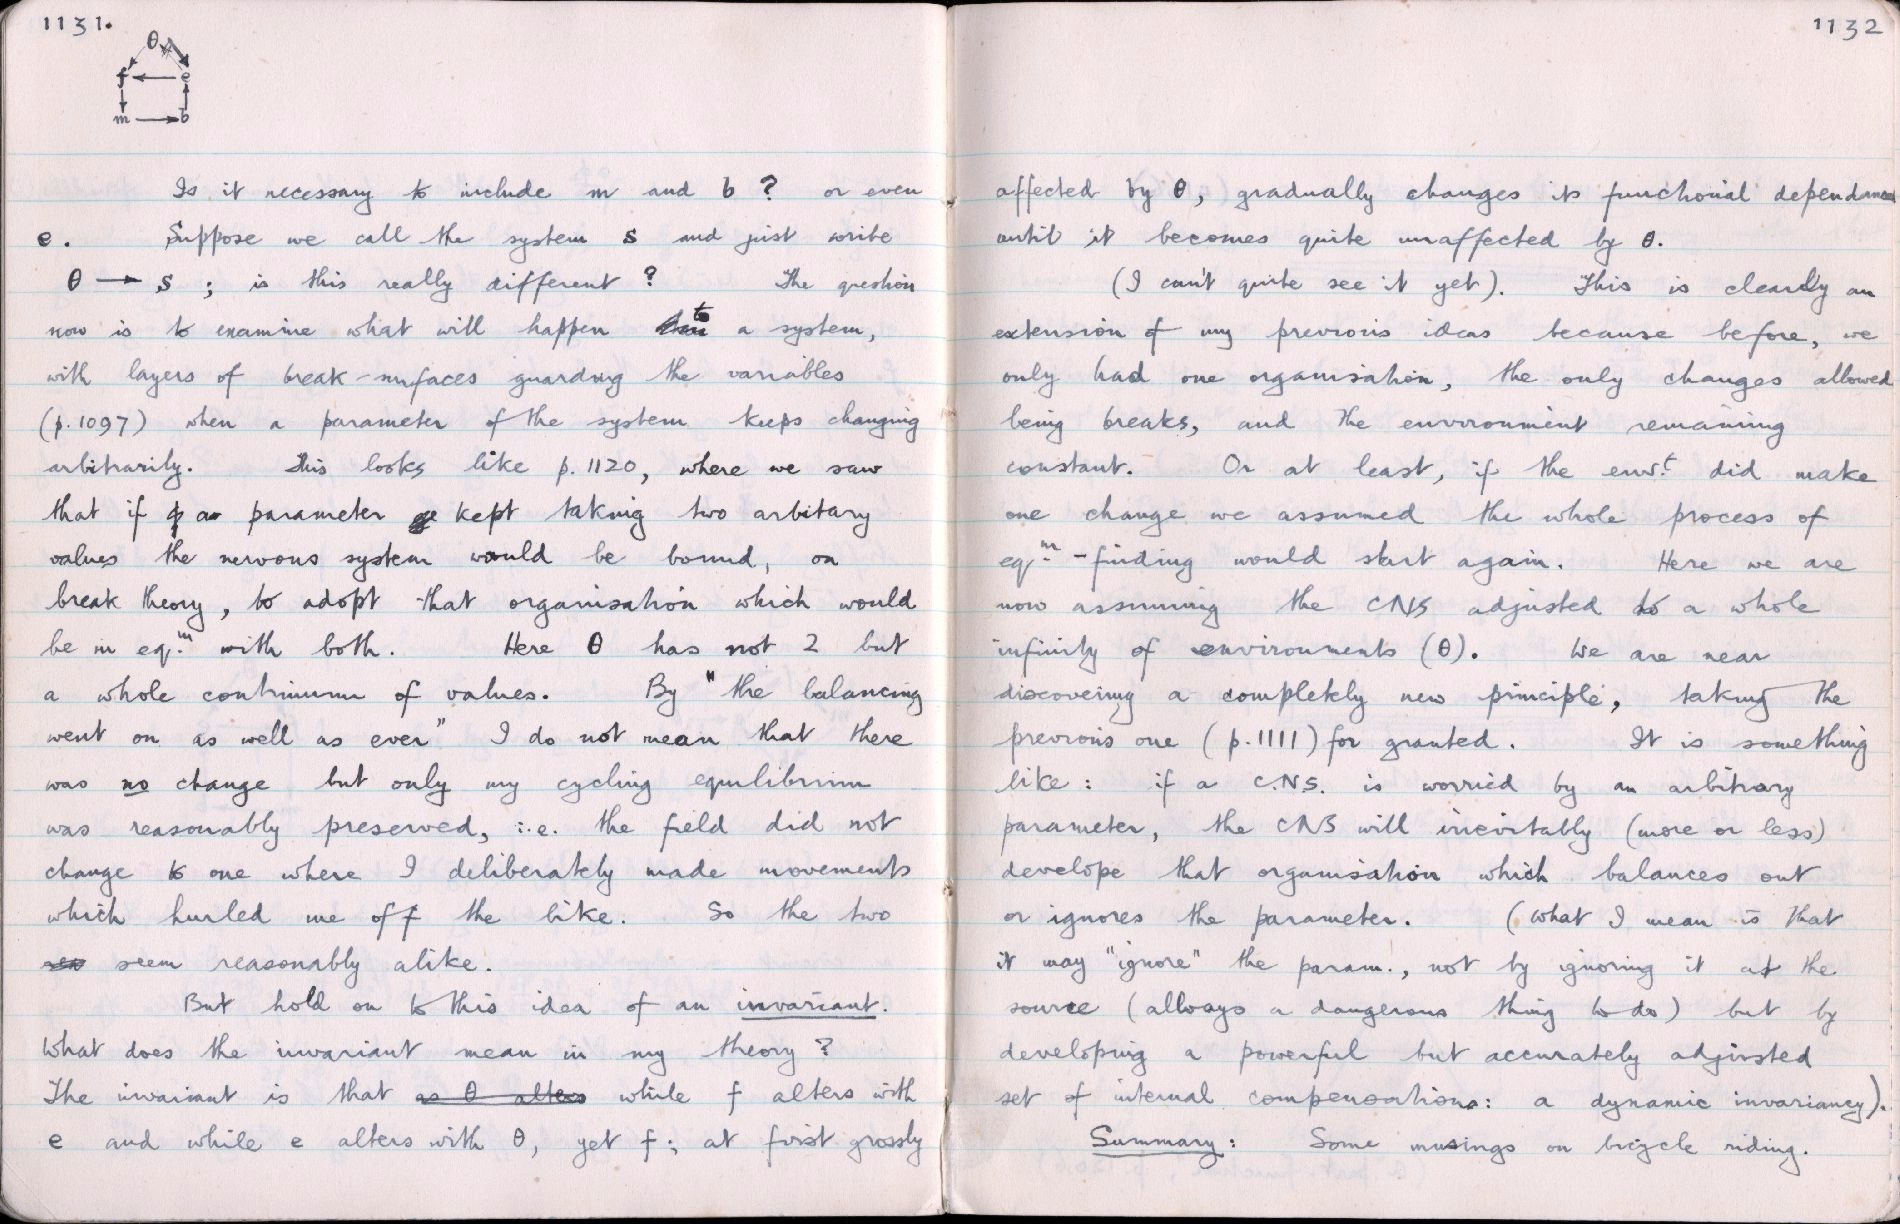 1131.
θ
f e
m b
Is it necessary to include m and b ? or even
e. Suppose we call the system s and just write
θ → s ; is this really different ? The question
now is to examine what will happen to a system,
with layers of break-surfaces guarding the variables
(p.1097) when a parameter of the system keeps changing
arbitrarily. This looks like p.1120, where we saw
that if a parameter kept taking two arbitary
values the nervous system would be bound, on
break theory, to adopt that organisation which would
be in eqm with both. Here θ has not 2 but
a whole continuum of values. By "the balancing
went on as well as ever" I do not mean that there
was no change but only my cycling equilibrium
was reasonably preserved, i.e. the field did not
change to one where I deliberately made movements
which hurled me off the bike. So the two
seem reasonably alike.
But hold on to this idea of an invariant.
What does the invariant mean in my theory ?
The invariant is that as θ alters while f alters with
e and while e alters with θ, yet f; at first grossly
1132
affected by θ, gradually changes its functional dependence
until it becomes quite unaffected by θ.
(I can't quite see it yet). This is clearly an
extension of my previous ideas because before, we
only had one organisation, the only changes allowed
being breaks, and the environment remaining
constant. Or at least, if the envt. did make
one change we assumed the whole process of
eqm-finding would start again. Here we are
now assuming the CNS adjusted to a whole
infinity of environments (θ). We are near
discoveing a completely new principle, taking the
previous one (p.1111) for granted. It is something
like : if a C.N.S. is worried by an arbitrary
parameter, the CNS will inevitably (more or less)
develope that organisation which balances out
or ignores the parameter. (What I mean is that
it may "ignore" the param., not by ignoring it at the
source (always a dangerous thing to do) but by
developing a powerful but accurately adjusted
set of internal compensations: a dynamic invariancy).
Summary: Some musings on bicycle riding.